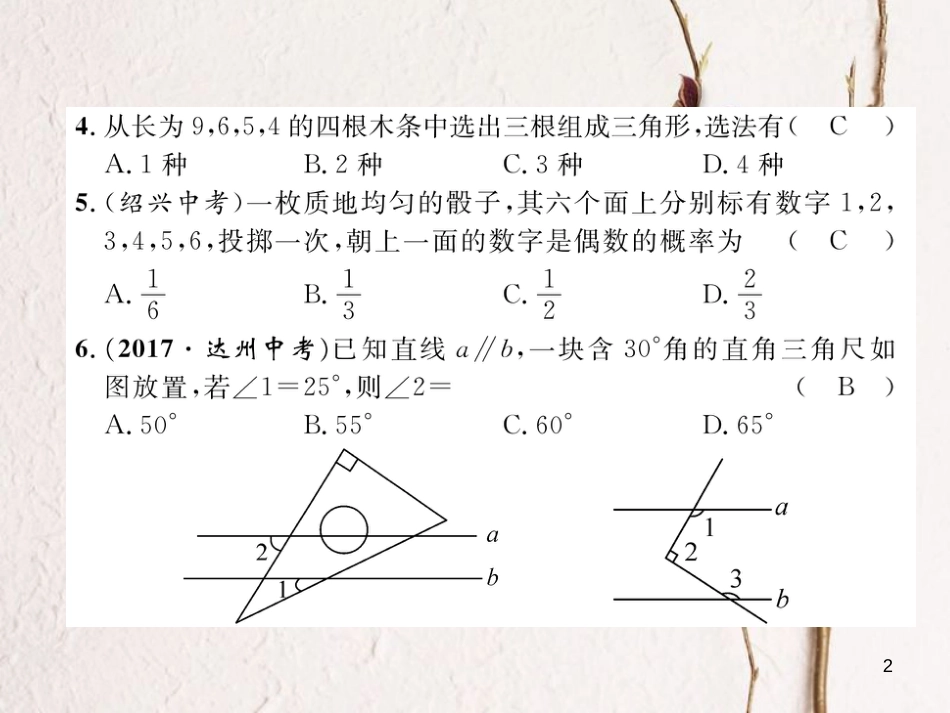 4. 从长为 9,6,5,4 的四根木条中选出三根组成三角形,选法有( C )
A. 1 种 B. 2 种 C. 3 种 D. 4 种
5. (绍兴中考)一枚质地均匀的骰子,其六个面上分别标有数字 1,2,
3,4,5,6,投掷一次,朝上一面的数字是偶数的概率为 ( C )
A. 1/6 B. 1/3 C. 1/2 D. 2/3
6. (2017 · 达州中考)已知直线 a∥b,一块含 30°角的直角三角尺如
图放置,若∠1=25°,则∠2= ( B )
A. 50° B. 55° C. 60° D. 65°
a
2
b
1
a
1
2
3
b
2